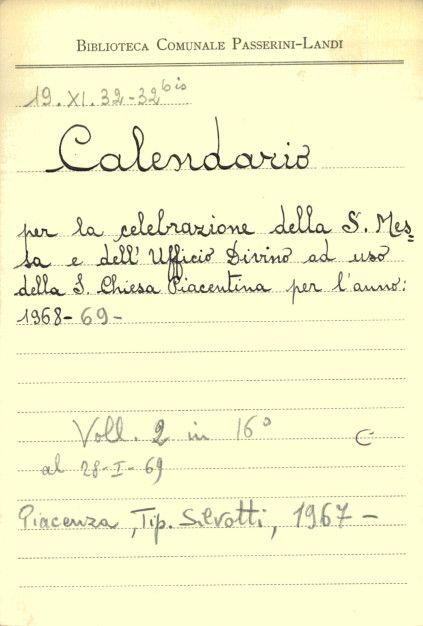 BIBLIOTECA COMUNALE PASSERINI-LANDI
19. XI. 32-32 bis
Calendario
per la celebrazione della S. Mes=
sa e dell' Ufficio Divino ad uso
della S. Chiesa Piacentina per l'anno:
1968-69-
Voll. 2 in 16° C
al 28-I-69
Piacenza, Tip. Silvotti, 1967 -